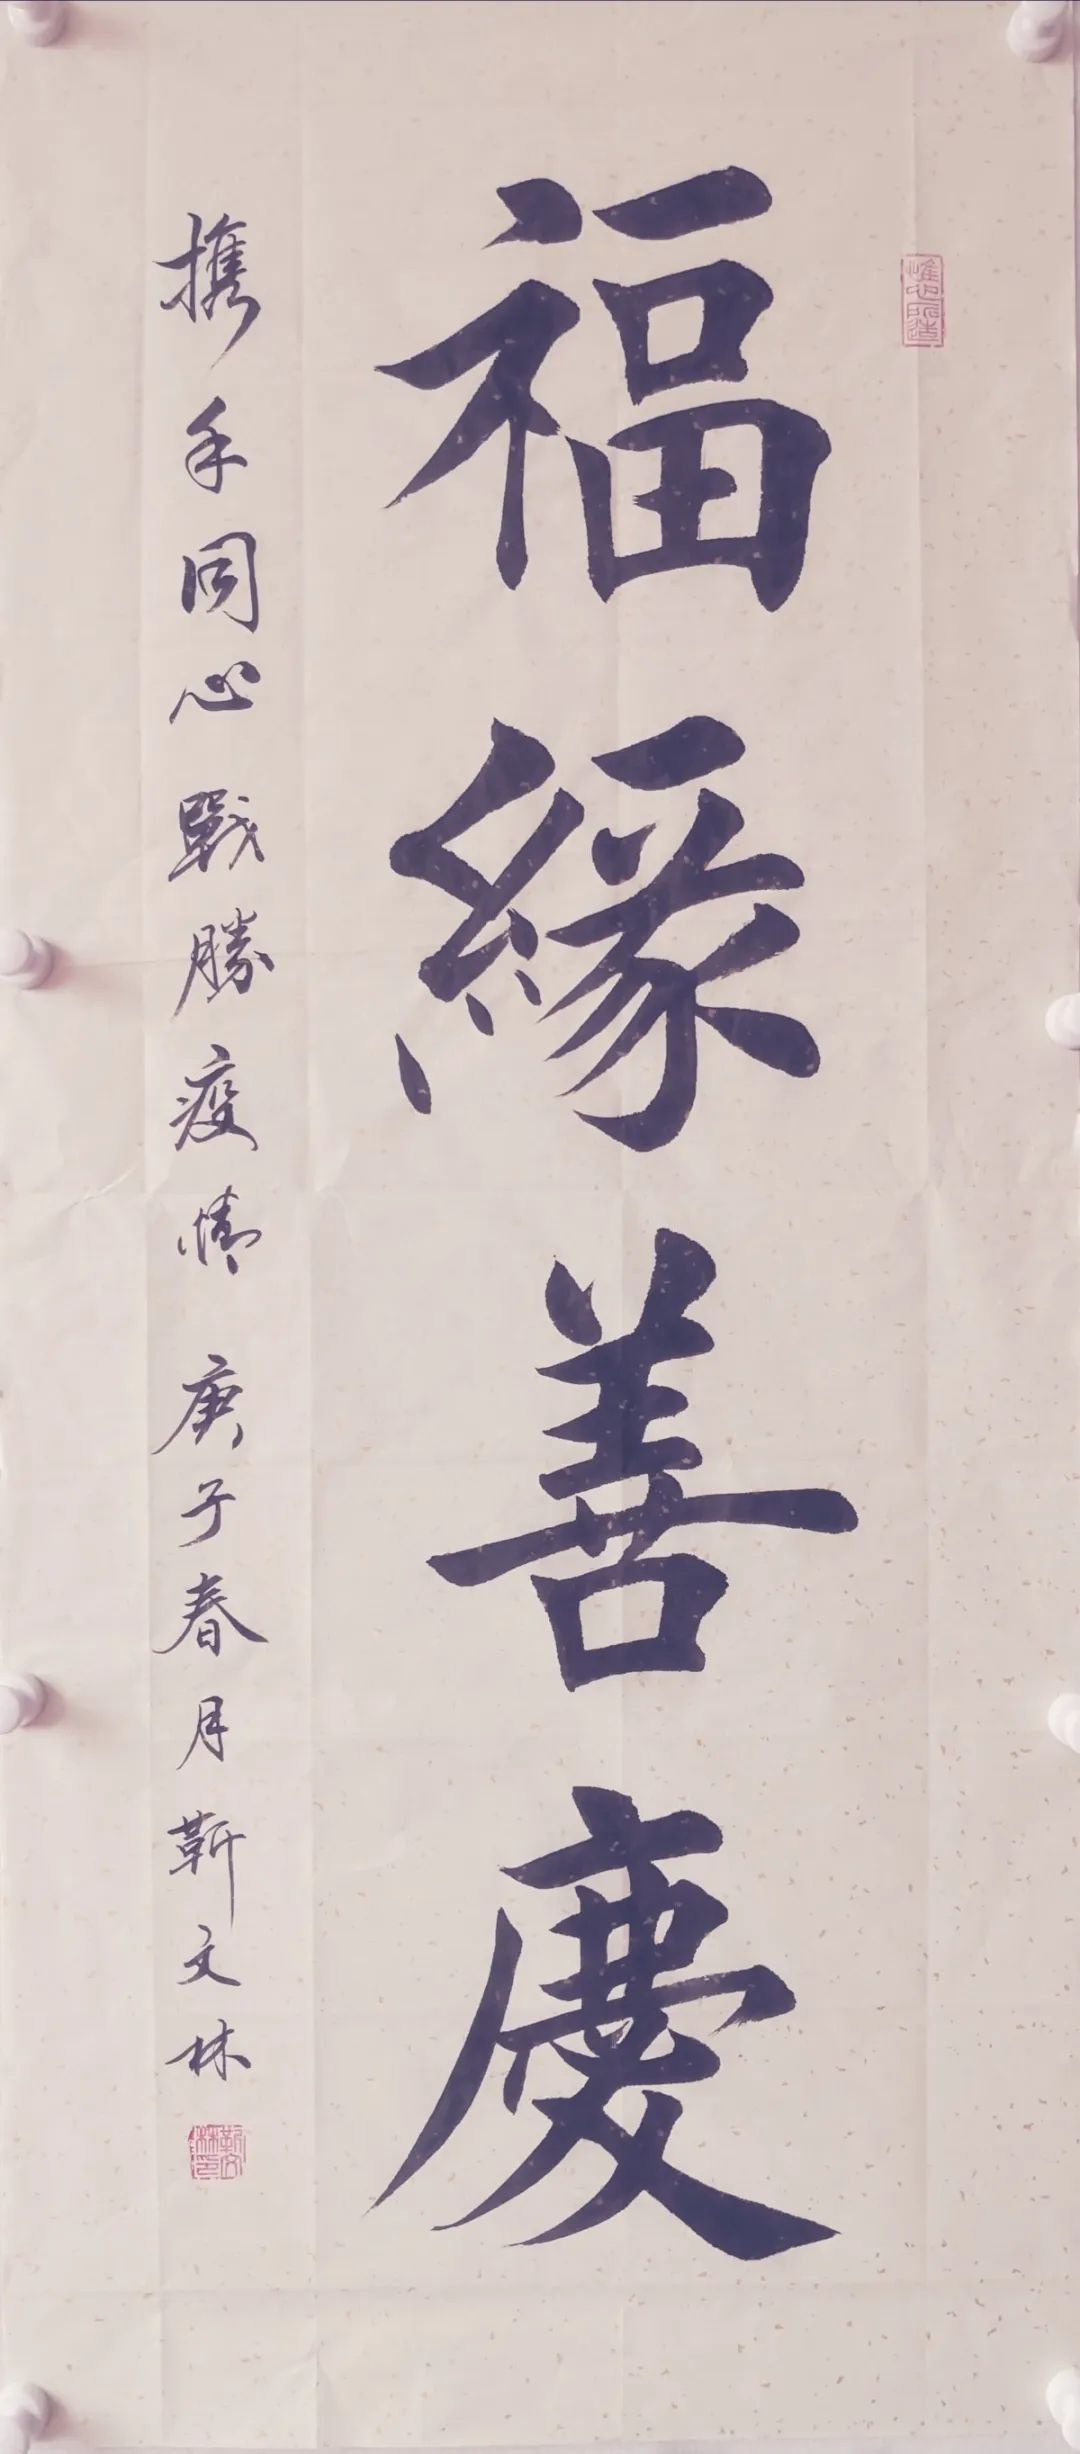 福緣善慶
携手同心戰勝疫情 庚子春月靳文林
惟心所造
靳文林印